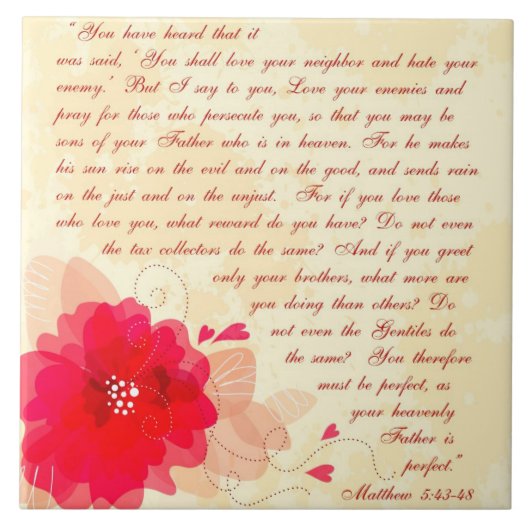 “You have heard that it
was said, ‘You shall love your neighbor and hate your
enemy.’ But I say to you, Love your enemies and
pray for those who persecute you, so that you may be
sons of your Father who is in heaven. For he makes
his sun rise on the evil and on the good, and sends rain
on the just and on the unjust. For if you love those
who love you, what reward do you have? Do not even
the tax collectors do the same? And if you greet
only your brothers, what more are
you doing than others? Do
not even the Gentiles do
the same? You therefore
must be perfect, as
your heavenly
Father is
perfect.”
Matthew 5:43-48